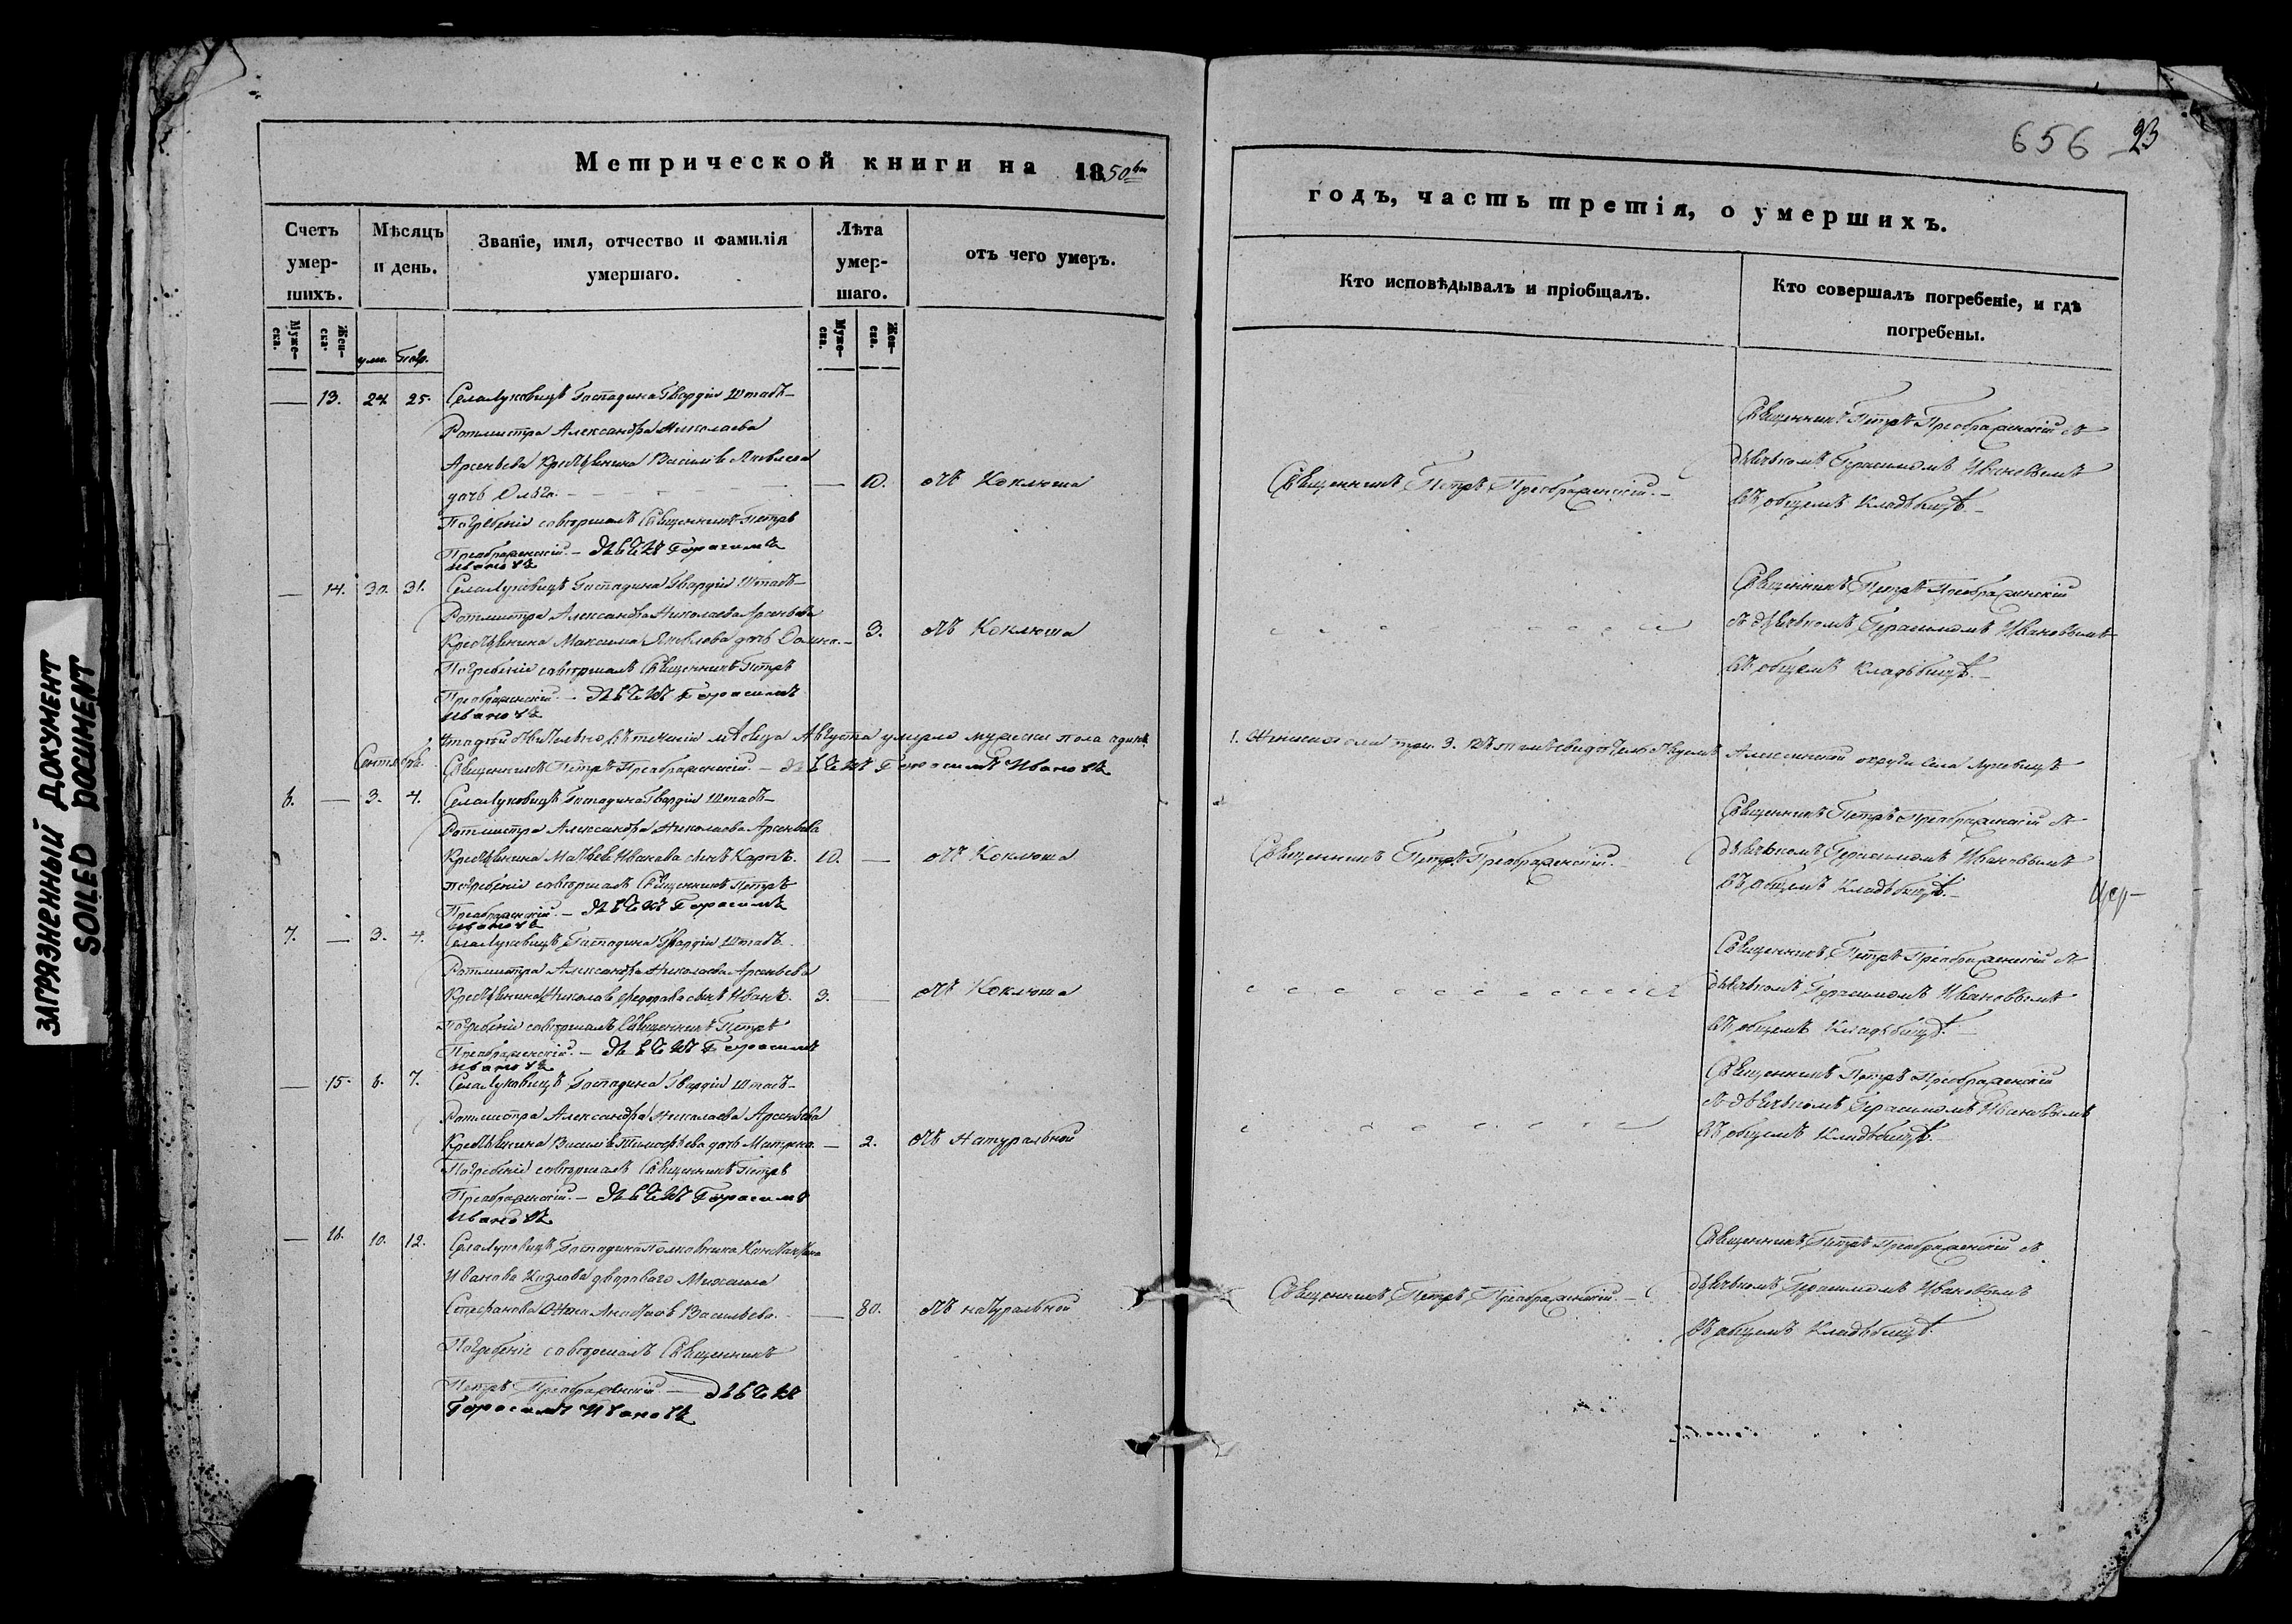 ЗАГРЯЗНЕННЫЙ ДОКУМЕНТ
SOILED DOCUMENT
Метрической книги на 1850й
Счетъ умер-
шихъ.
Мѣсяцъ
и день.
Званіе, имя, отчество и фамилія
умершаго.
Лѣта
умер-
шаго.
отъ чего умеръ.
Муже-
ска.
Жен-
ска.
ум. погр.
Муже-
ска.
Жен-
ска.
— 13. 24. 25. Села Луковицъ Господина Гвардіи Штабъ-
Ротмистра Александра Николаева
Арсеньева Крестьянина Василья Яковлева
дочь Ольга. — 10. отъ Коклюша
Погребеніе совершалъ Священникъ Петръ
Преображенскій. — дьячекъ Герасимъ
Ивановъ
— 14. 30. 31. Села Луковицъ Господина Гвардіи Штабъ-
Ротмистра Александра Николаева Арсеньева
Крестьянина Максима Яковлева дочь Домна. — 3. отъ Коклюша
Погребеніе совершалъ Священникъ Петръ
Преображенскій. — дьячекъ Герасимъ
Ивановъ
Итого дѣйствительно въ теченіи мѣсяца Августа умерло мужеска пола одинъ
Сентябрь. Священникъ Петръ Преображенскій. — дьячекъ Герасимъ Ивановъ
6. — 3. 4. Села Луковицъ Господина Гвардіи Штабъ-
Ротмистра Александра Николаева Арсеньева
Крестьянина Матвея Иванова сынъ Карпъ. 10. — отъ Коклюша
Погребеніе совершалъ Священникъ Петръ
Преображенскій. — дьячекъ Герасимъ
Ивановъ
7. — 3. 4. Села Луковицъ Господина Гвардіи Штабъ-
Ротмистра Александра Николаева Арсеньева
Крестьянина Николая Федорова сынъ Иванъ. 3. — отъ Коклюша
Погребеніе совершалъ Священникъ Петръ
Преображенскій. — дьячекъ Герасимъ
Ивановъ
— 15. 6. 7. Села Луковицъ Господина Гвардіи Штабъ-
Ротмистра Александра Николаева Арсеньева
Крестьянина Василья Тимофѣева дочь Матрена. — 2. отъ Натуральной
Погребеніе совершалъ Священникъ Петръ
Преображенскій. — дьячекъ Герасимъ
Ивановъ
— 16. 10. 12. Села Луковицъ Господина Полковника Константина
Иванова Козлова двороваго Михаила
Стефанова Жена Васильева. — 80. отъ натуральной
Погребеніе совершалъ Священникъ
Петръ Преображенскій — дьячекъ
Герасимъ Ивановъ
656 23
годъ, часть третія, о умершихъ.
Кто исповѣдывалъ и пріобщалъ.
Кто совершалъ погребеніе, и гдѣ
погребены.
Священникъ Петръ Преображенскій съ
дьячкомъ Герасимомъ Ивановымъ
Священникъ Петръ Преображенскій. —
въ общемъ Кладбищѣ. —
Священникъ Петръ Преображенскій
съ дьячкомъ Герасимомъ Ивановымъ
въ общемъ Кладбищѣ. —
1. Женска пола три. 3. Въ томъ свидѣтельствуемъ Алексинской округи Села Луковицъ
Священникъ Петръ Преображенскій съ
Священникъ Петръ Преображенскій. —
дьячкомъ Герасимомъ Ивановымъ
въ общемъ Кладбищѣ. —
Цер-
Священникъ Петръ Преображенскій съ
дьячкомъ Герасимомъ Ивановымъ
въ общемъ Кладбищѣ. —
Священникъ Петръ Преображенскій
съ дьячкомъ Герасимомъ Ивановымъ
въ общемъ Кладбищѣ. —
Священникъ Петръ Преображенскій съ
Священникъ Петръ Преображенскій. —
дьячкомъ Герасимомъ Ивановымъ
въ общемъ Кладбищѣ.